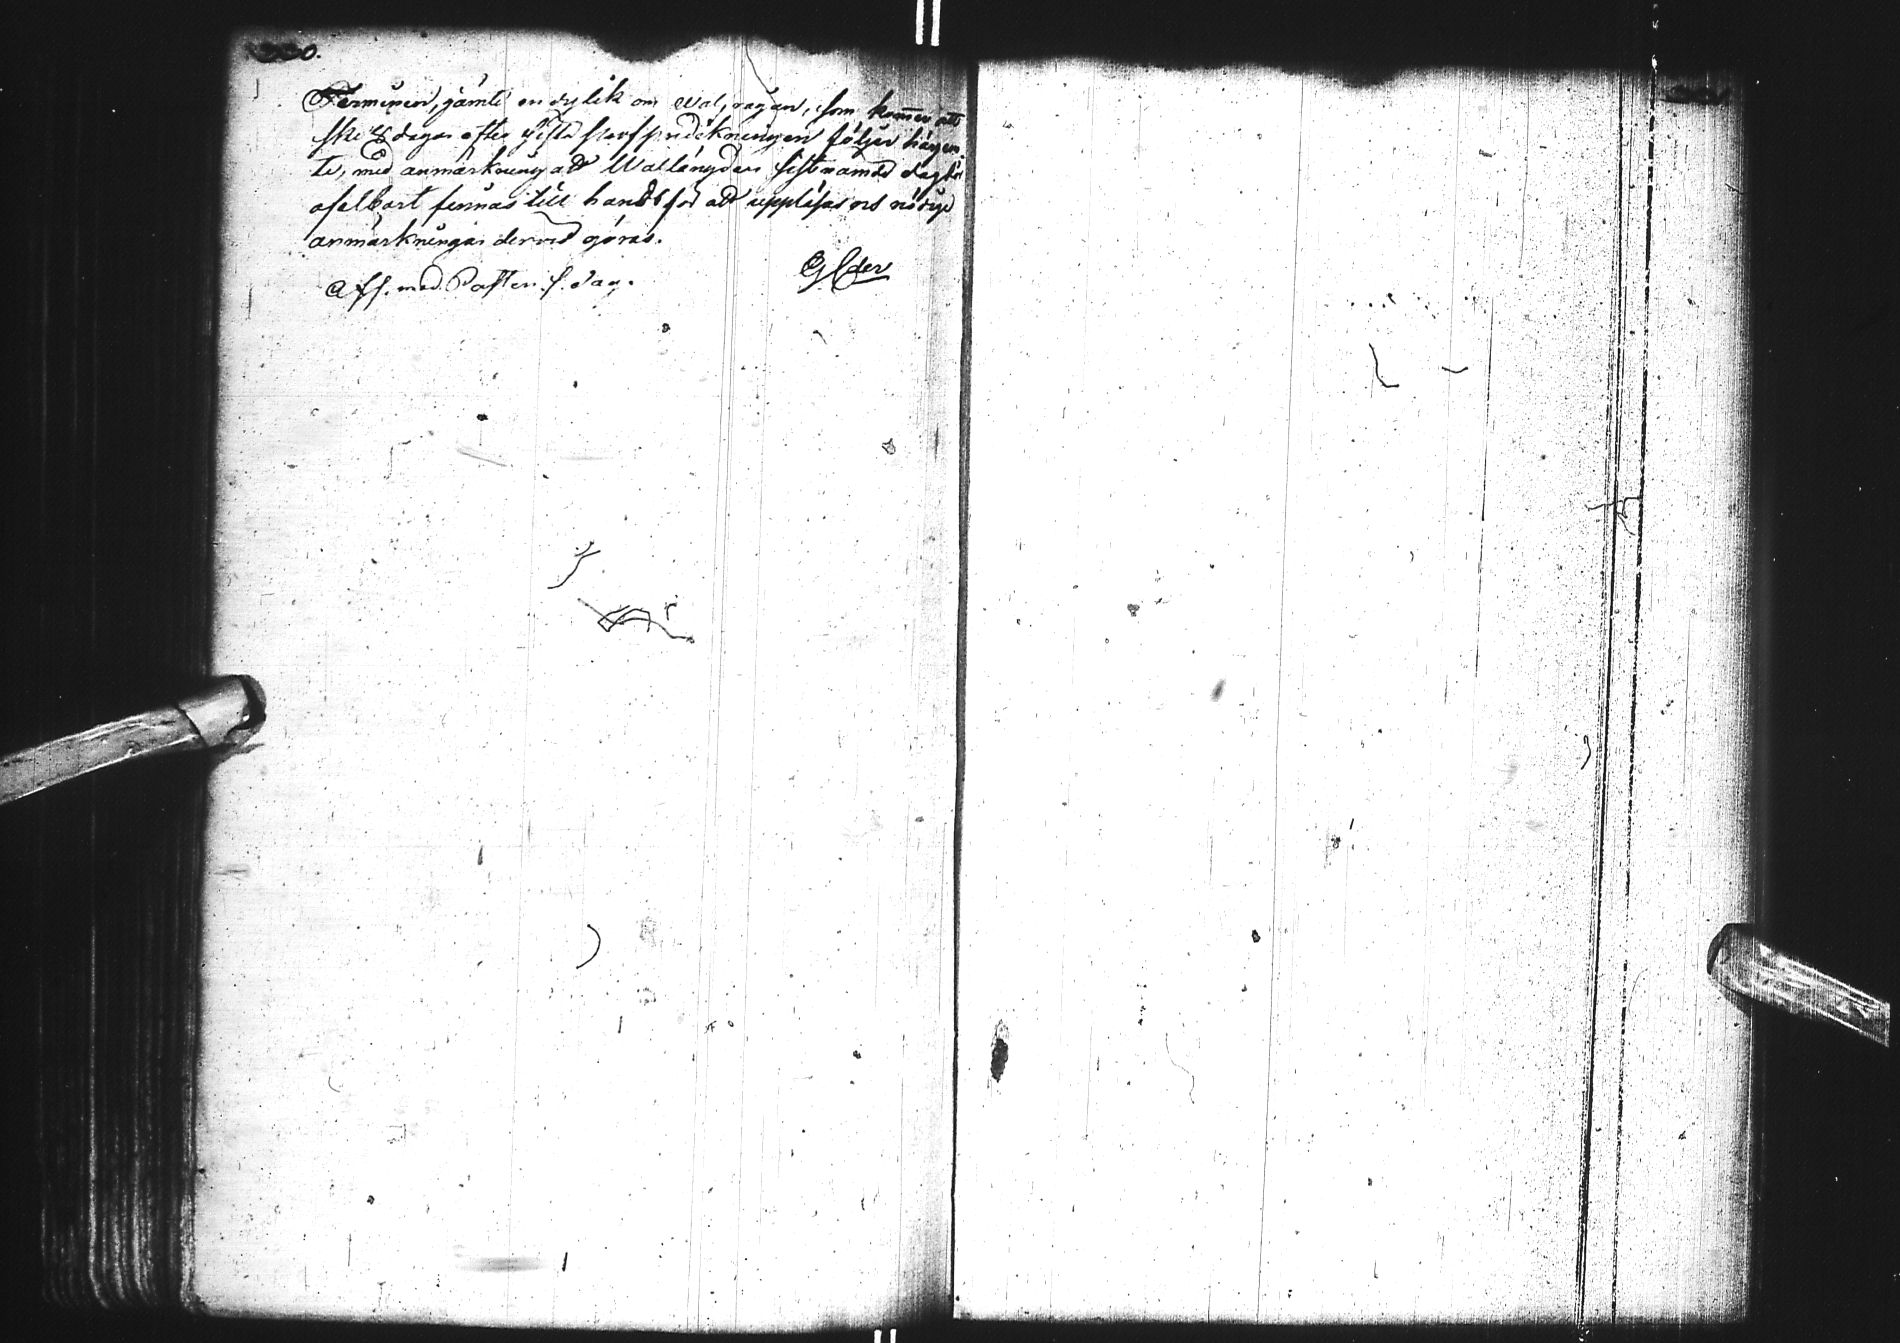 330.
Terminen, jämte en dylik om Valdagen, som kom̅er att
ske 8 dagar efter sista profpredikningen följer härjem-
te, med anmärkning att Vallängden sistnämde dag bör
ofelbart finnas till hands för att uppläsas och nödige
anmärkningar dervid göras.
Aff. med Posten s. dag.
331.